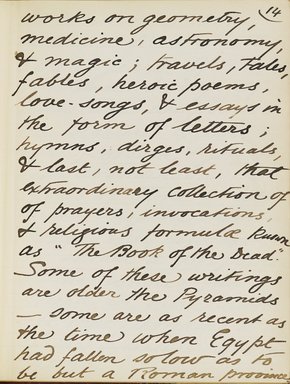 14
works on geometry,
medicine, astronomy,
& magic; travels, tales,
fables, heroic poems,
love-songs, & essays in
the form of letters;
hymns, dirges, rituals,
& last, not least, that
extraordinary collection of
of prayers, invocations,
& religious formulæ known
as "The Book of the Dead".
Some of these writings
are older the Pyramids
— some are as recent as
the time when Egypt
had fallen so low as to
be but a Roman province